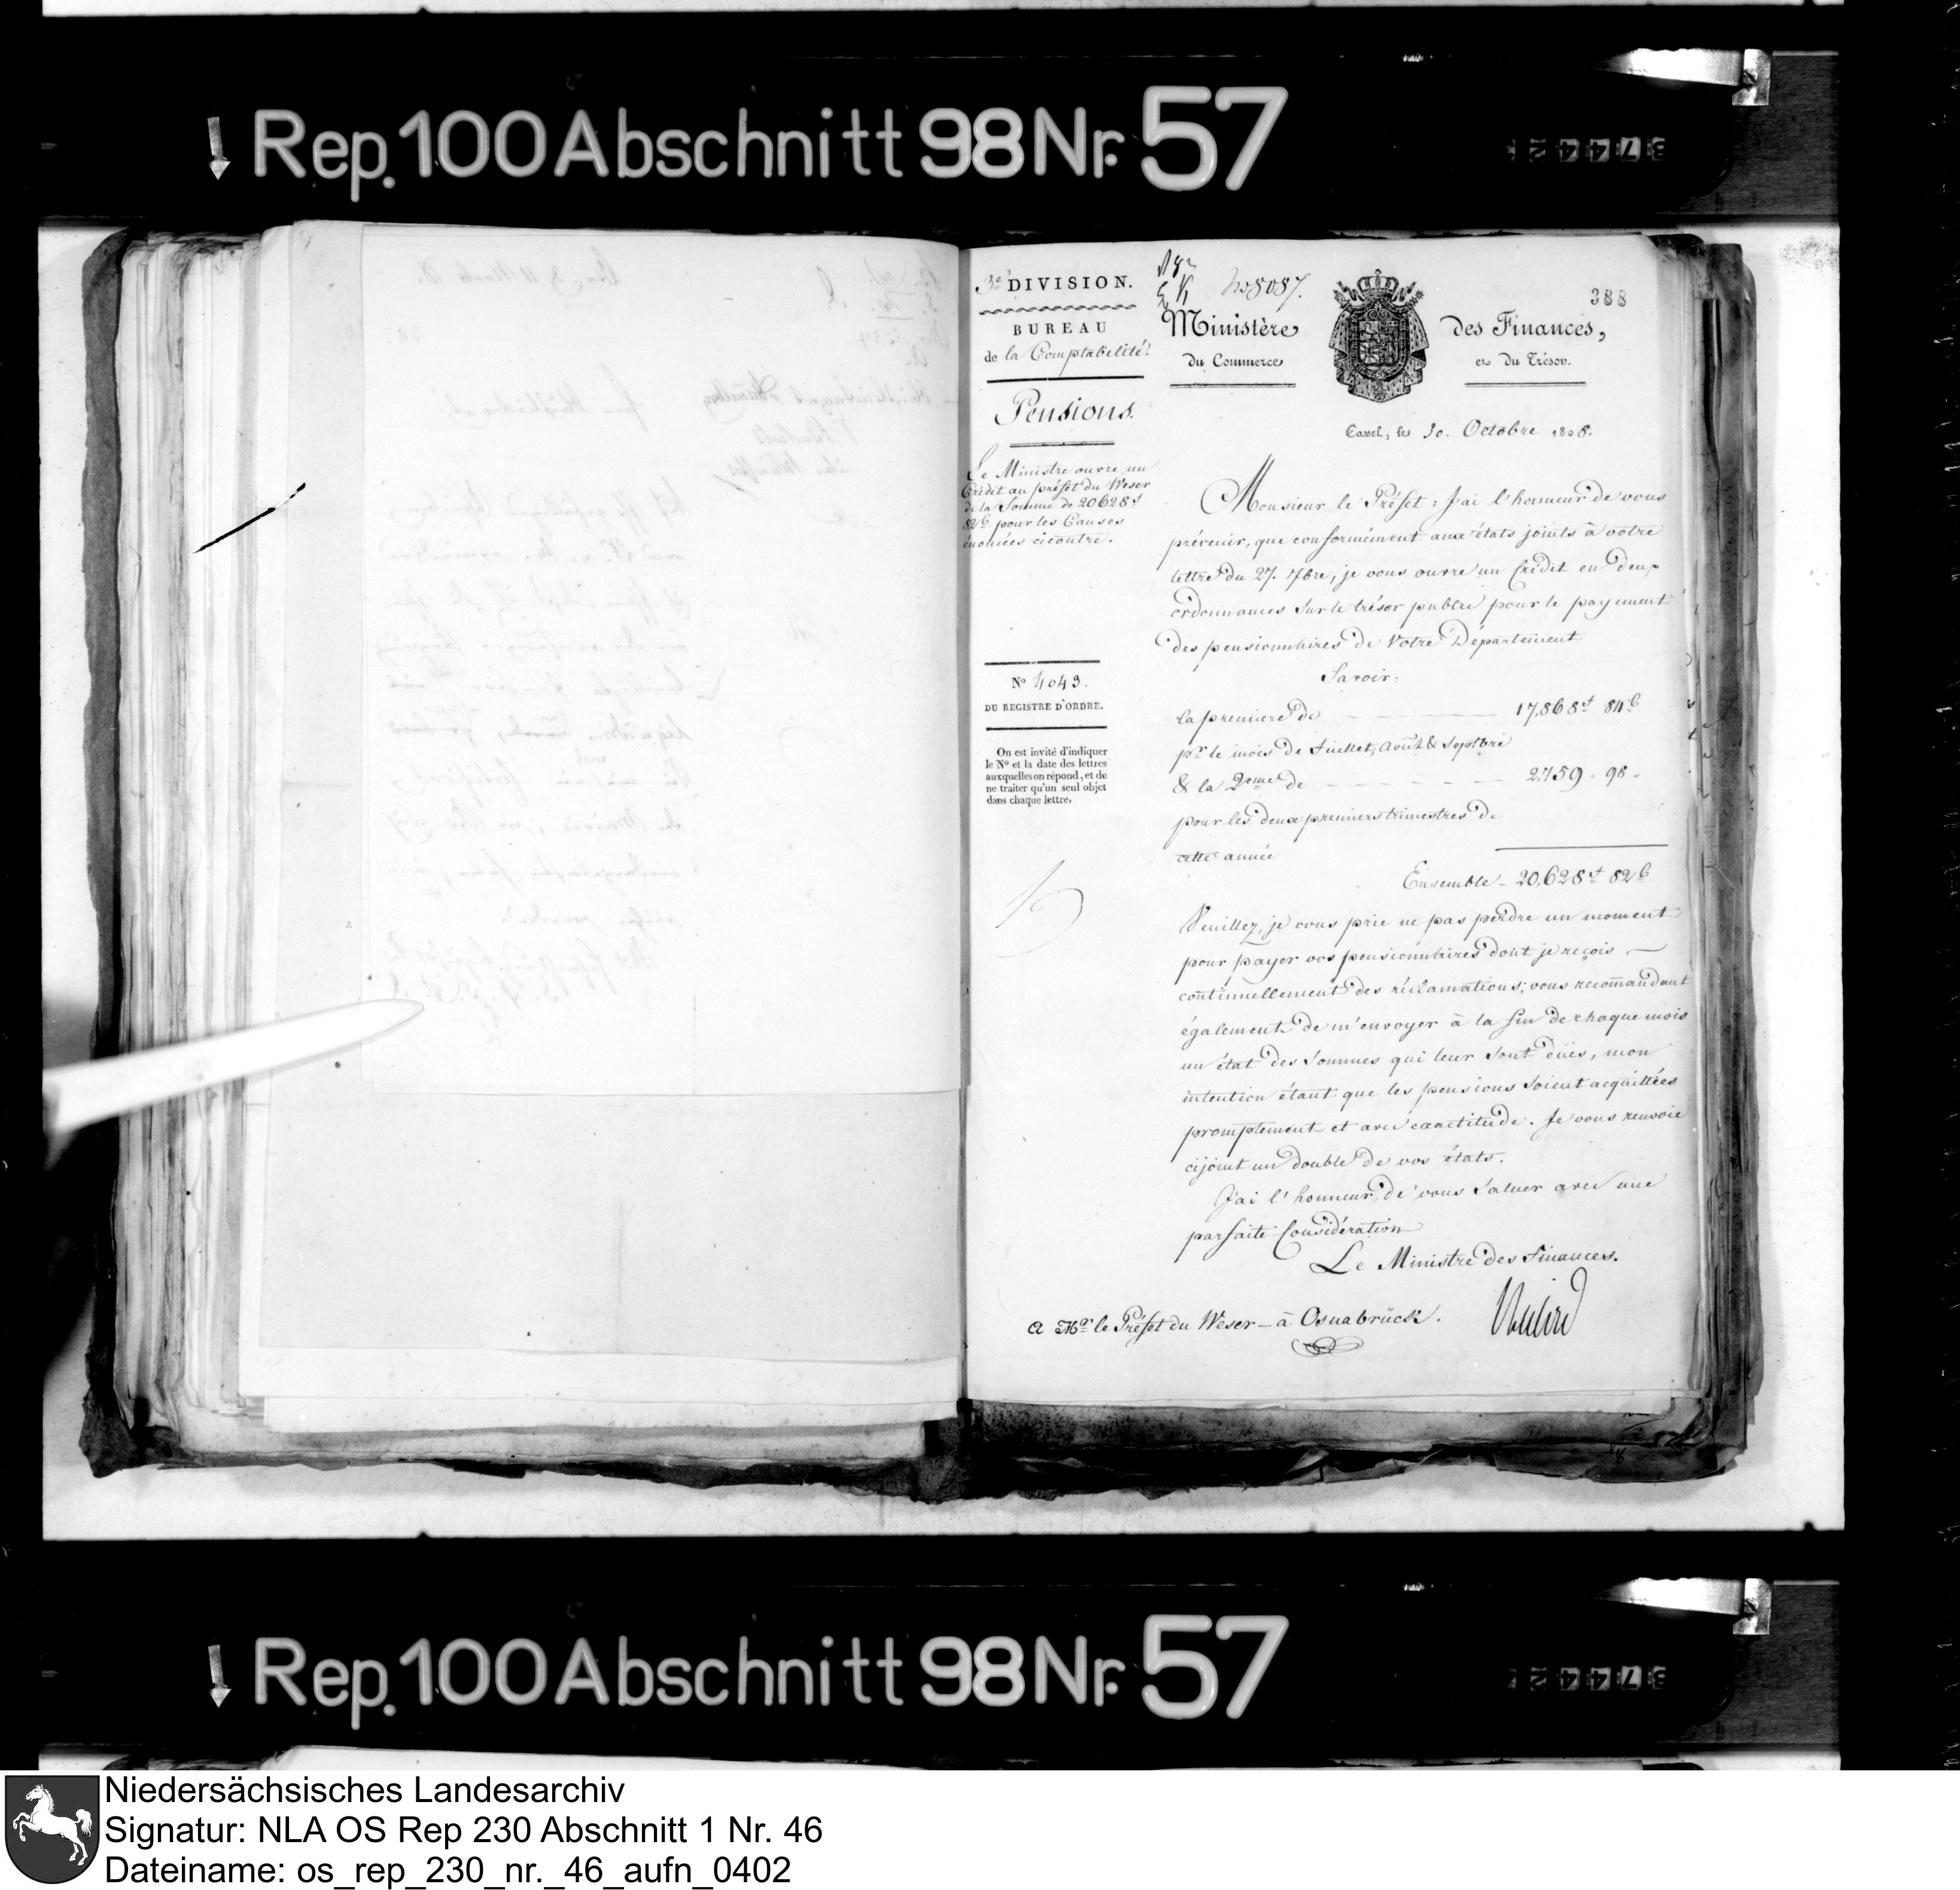 Rep. 100 Abschnitt 98 Nr. 57
388
3e. DIVISION.
BUREAU
de la Comptabilité.
Pensions.
Le Ministre ouvre un
Crédit au préfet du Weser
de la Somme de 20628 f
82 c pour les Causes
énoncées cicontre.
No 4043.
DU REGISTRE D'ORDRE.
On est invité d'indiquer
le No et la date des lettres
auxquelles on répond, et de
ne traiter qu'un seul objet
dans chaque lettre.
Ministère des Finances,
du Commerce et du Trésor.
Cassel, le 30. Octobre 1808.
Monsieur le Préfet; J'ai l'honneur de vous
prévenir, que conformément aux états joints à votre
lettre du 27. 7bre, je vous ouvre un Crédit en deux
ordonnances sur le trésor public pour le payement
des pensionnaires de Votre Département
Savoir:
la premiere de 17,868 f 84 c
pr. le mois de Juillet, Août & Septbre
& la 2eme de 2,759 " 98 "
pour les deux premiers trimestres de
cette année
Ensemble - 20,628 f 82 c
Veuillez, je vous prie ne pas perdre un moment
pour payer vos pensionnaires dont je reçois
continuellement des réclamations; vous recom̄andant
également de m'envoyer à la fin de chaque mois
un état des Sommes qui leur sont dües, mon
intention étant que les pensions soient acquittées
promptement et avec exactitude. Je vous renvoie
cijoint un double de vos états.
J'ai l'honneur de vous saluer avec une
parfaite Considération
Le Ministre des Finances.
A Mr. le Préfet du Weser - à Osnabrück.
Rep. 100 Abschnitt 98 Nr. 57
Niedersächsisches Landesarchiv
Signatur: NLA OS Rep 230 Abschnitt 1 Nr. 46
Dateiname: os_rep_230_nr._46_aufn_0402